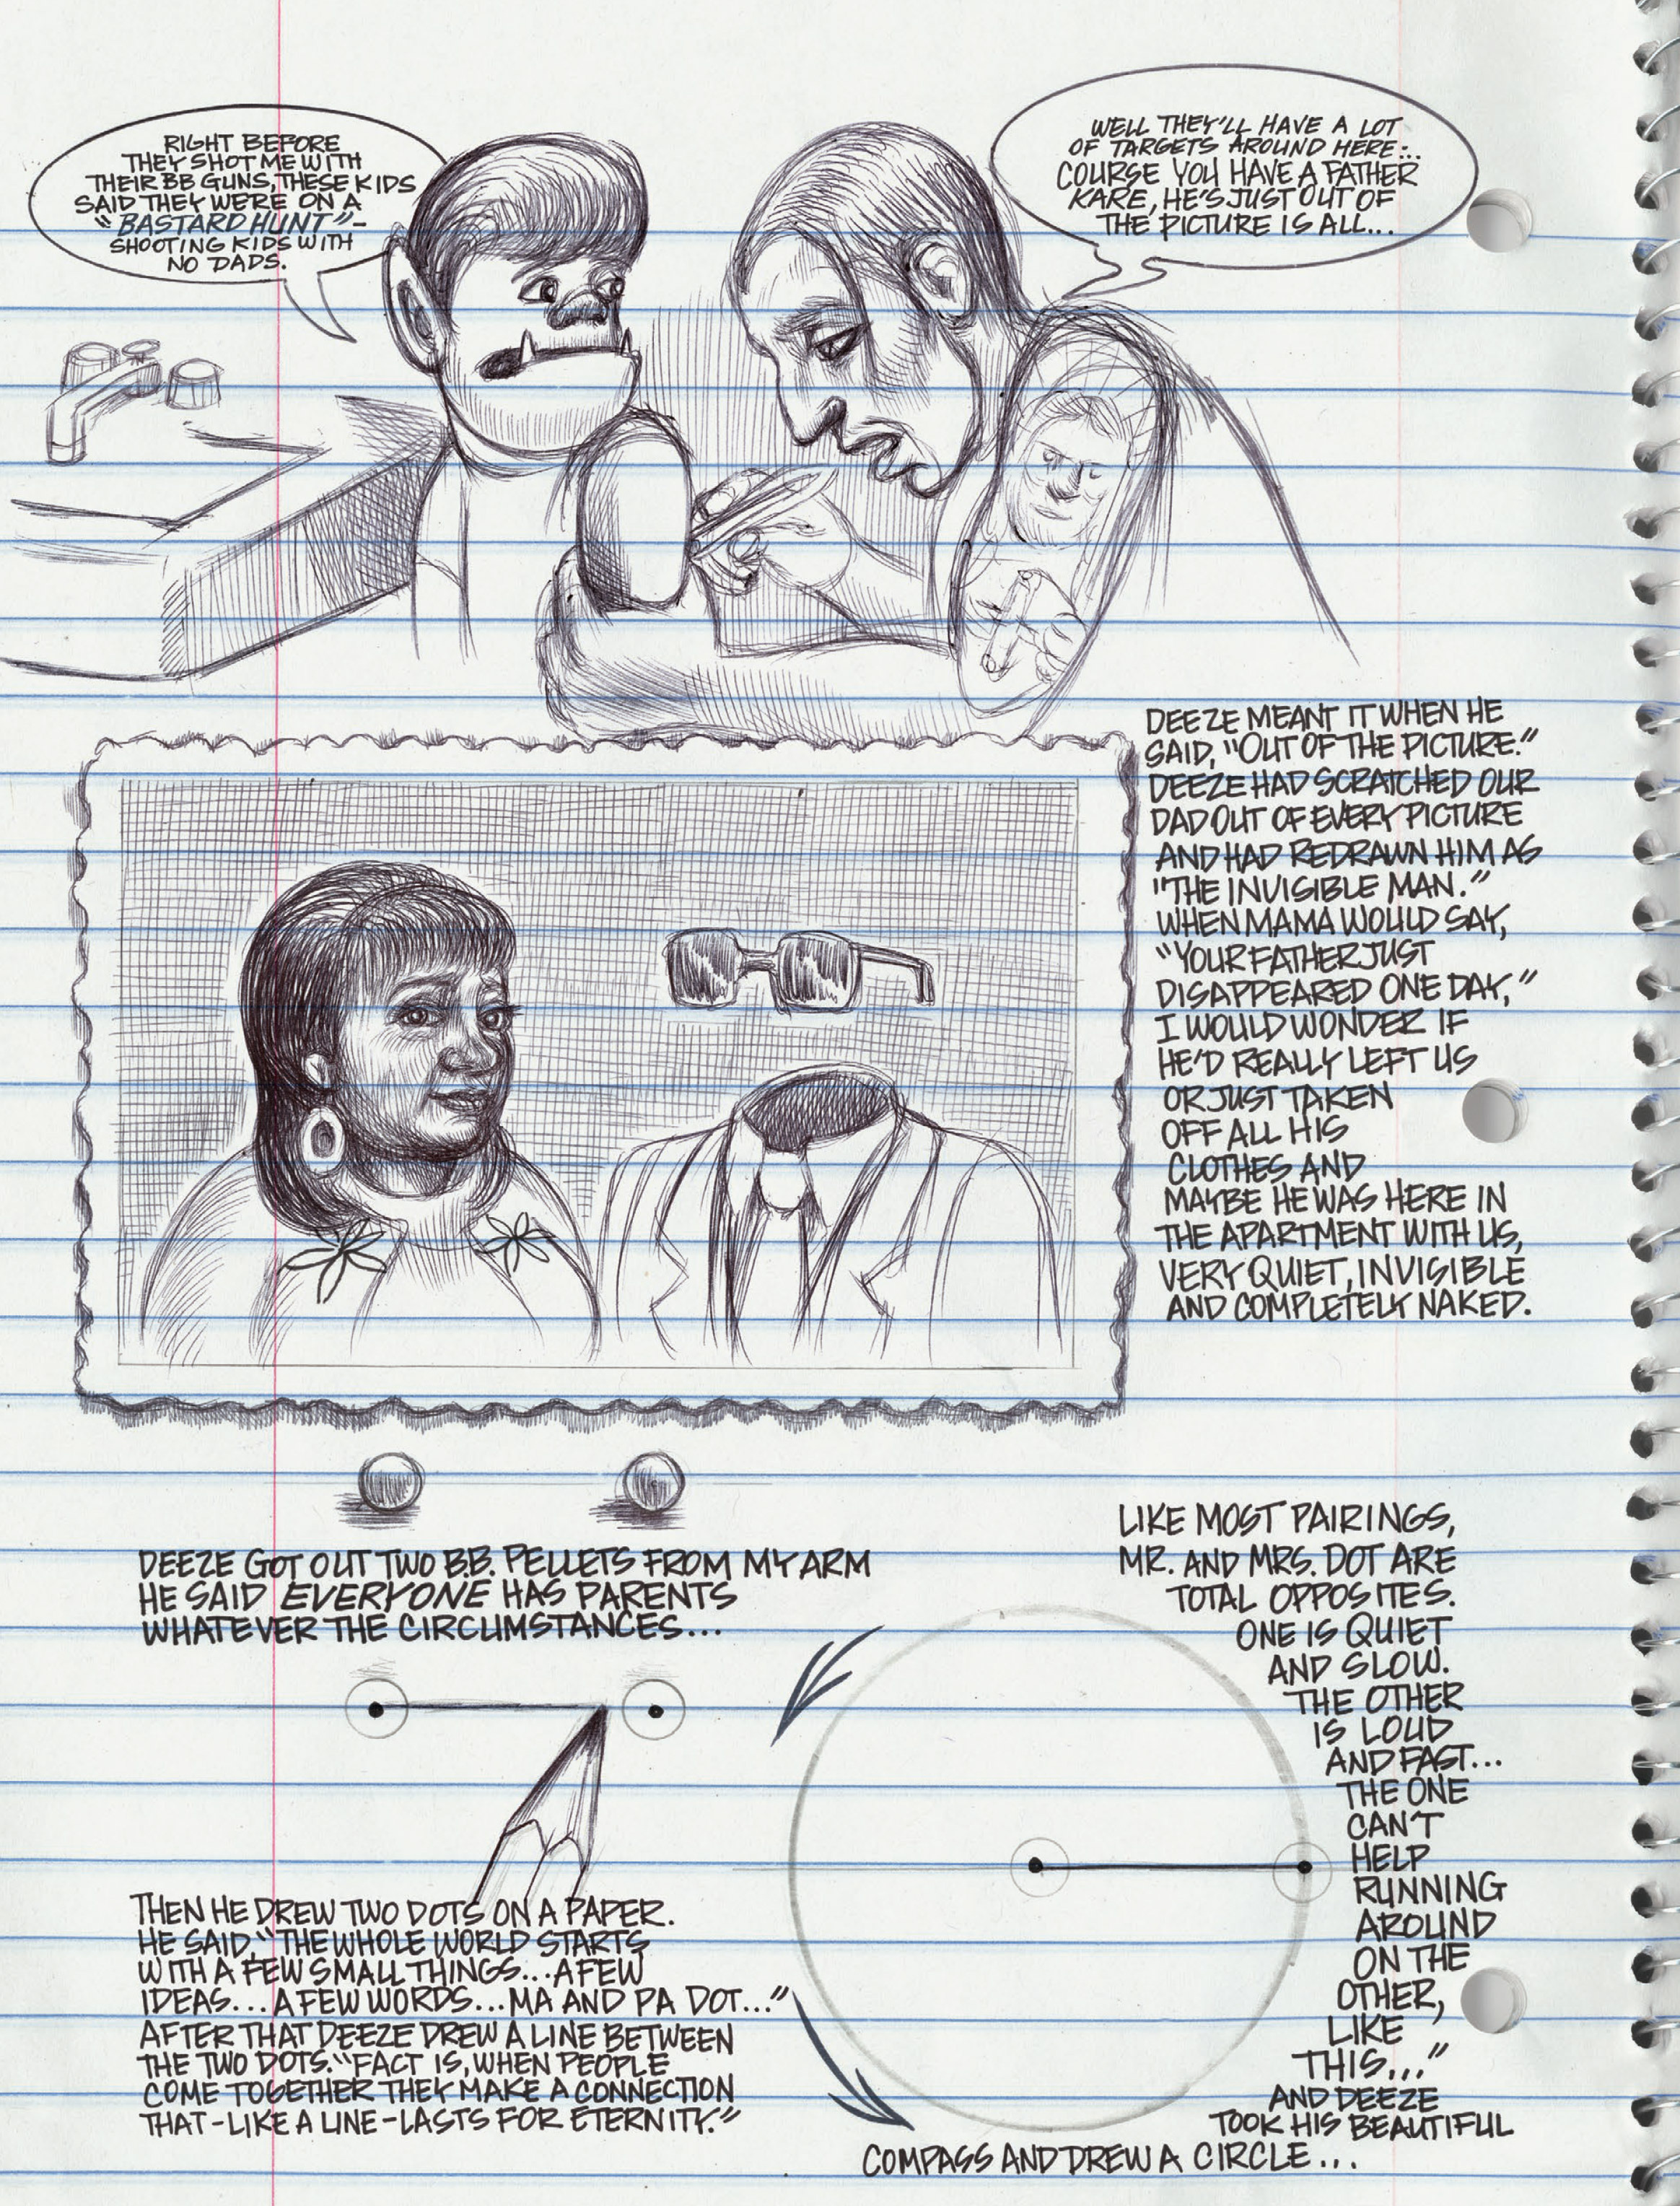 RIGHT BEFORE
THEY SHOT ME WITH
THEIR BB GUNS, THESE KIDS
SAID THEY WERE ON A
"BASTARD HUNT"-
SHOOTING KIDS WITH
NO DADS.
WELL THEY'LL HAVE A LOT
OF TARGETS AROUND HERE...
COURSE YOU HAVE A FATHER
KARE, HE'S JUST OUT OF
THE PICTURE IS ALL...
DEEZE MEANT IT WHEN HE
SAID, "OUT OF THE PICTURE."
DEEZE HAD SCRATCHED OUR
DAD OUT OF EVERY PICTURE
AND HAD REDRAWN HIM AS
"THE INVISIBLE MAN."
WHEN MAMA WOULD SAY,
"YOUR FATHER JUST
DISAPPEARED ONE DAY,"
I WOULD WONDER IF
HE'D REALLY LEFT US
OR JUST TAKEN
OFF ALL HIS
CLOTHES AND
MAYBE HE WAS HERE IN
THE APARTMENT WITH US,
VERY QUIET, INVISIBLE
AND COMPLETELY NAKED.
DEEZE GOT OUT TWO B.B. PELLETS FROM MY ARM
HE SAID EVERYONE HAS PARENTS
WHATEVER THE CIRCUMSTANCES...
THEN HE DREW TWO DOTS ON A PAPER.
HE SAID, "THE WHOLE WORLD STARTS
WITH A FEW SMALL THINGS...A FEW
IDEAS...A FEW WORDS...MA AND PA DOT..."
AFTER THAT DEEZE DREW A LINE BETWEEN
THE TWO DOTS. "FACT IS, WHEN PEOPLE
COME TOGETHER THEY MAKE A CONNECTION
THAT-LIKE A LINE-LASTS FOR ETERNITY."
LIKE MOST PAIRINGS,
MR. AND MRS. DOT ARE
TOTAL OPPOSITES.
ONE IS QUIET
AND SLOW.
THE OTHER
IS LOUD
AND FAST...
THE ONE
CAN'T
HELP
RUNNING
AROUND
ON THE
OTHER,
LIKE
THIS..."
AND DEEZE
TOOK HIS BEAUTIFUL
COMPASS AND DREW A CIRCLE...